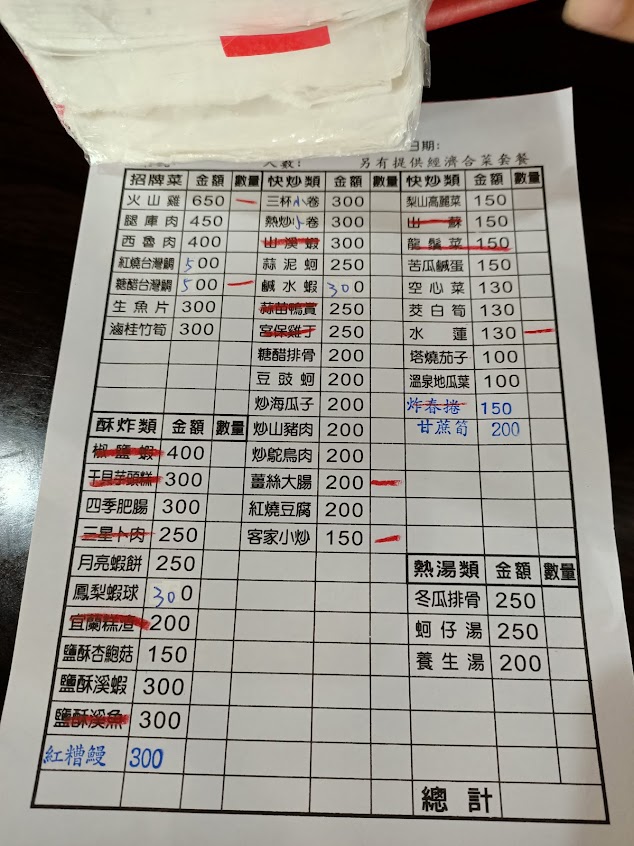 日期:
人數: 另有提供經濟合菜套餐
招牌菜 金額 數量
火山雞 650 一
腿庫肉 450
西魯肉 400
紅燒台灣鯛 500
糖醋台灣鯛 500 一
生魚片 300
滷桂竹筍 300
酥炸類 金額 數量
椒鹽蝦 400
干貝芋頭糕 300
四季肥腸 300
三星卜肉 250
月亮蝦餅 250
鳳梨蝦球 300
宜蘭糕渣 200
鹽酥杏鮑菇 150
鹽酥溪蝦 300
鹽酥溪魚 300
紅糟鰻 300
快炒類 金額 數量
三杯小卷 300
熱炒小卷 300
山溪蝦 300
蒜泥蚵 250
鹹水蝦 300
蒜苗鴨賞 250
宮保雞丁 250
糖醋排骨 200
豆豉蚵 200
炒海瓜子 200
炒山豬肉 200
炒鴕鳥肉 200
薑絲大腸 200 一
紅燒豆腐 200
客家小炒 150 一
快炒類 金額 數量
梨山高麗菜 150
山蘇 150
龍鬚菜 150
苦瓜鹹蛋 150
空心菜 130
茭白筍 130
水蓮 130 一
塔燒茄子 100
溫泉地瓜葉 100
炸春捲 150
甘蔗筍 200
熱湯類 金額 數量
冬瓜排骨 250
蚵仔湯 250
養生湯 200
總計